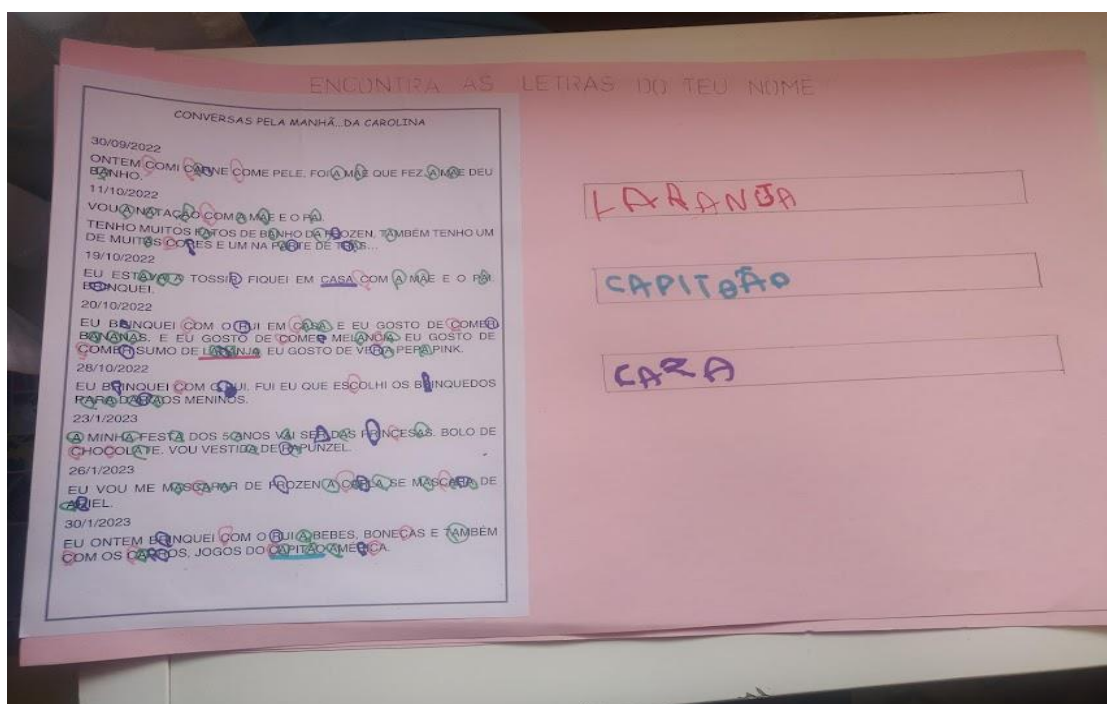 ENCONTRA AS LETRAS DO TEU NOME
CONVERSAS PELA MANHÃ...DA CAROLINA
30/09/2022
ONTEM COMI CARNE COME PELE. FOI A MÃE QUE FEZ. A MÃE DEU
BANHO.
11/10/2022
VOU A NATAÇÃO COM A MÃE E O PAI.
TENHO MUITOS FATOS DE BANHO DA FROZEN, TAMBÉM TENHO UM
DE MUITAS CORES E UM NA PARTE DE TRÁS...
19/10/2022
EU ESTAVA A TOSSIR FIQUEI EM CASA COM A MÃE E O PAI.
BRINQUEI.
20/10/2022
EU BRINQUEI COM O RUI EM CASA E EU GOSTO DE COMER
BANANAS. E EU GOSTO DE COMER MELANCIA EU GOSTO DE
COMER SUMO DE LARANJA EU GOSTO DE VER A PEPA PINK.
28/10/2022
EU BRINQUEI COM O RUI. FUI EU QUE ESCOLHI OS BRINQUEDOS
PARA DAR AOS MENINOS.
23/1/2023
A MINHA FESTA DOS 5 ANOS VAI SER DAS PRINCESAS. BOLO DE
CHOCOLATE. VOU VESTIDA DE RAPUNZEL.
26/1/2023
EU VOU ME MASCARAR DE FROZEN A CARLA SE MASCARA DE
ARIEL.
30/1/2023
EU ONTEM BRINQUEI COM O RUI A BEBES, BONECAS E TAMBÉM
COM OS CARROS, JOGOS DO CAPITÃO AMÉRICA.
LARANJA
CAPITÃO
CAZA